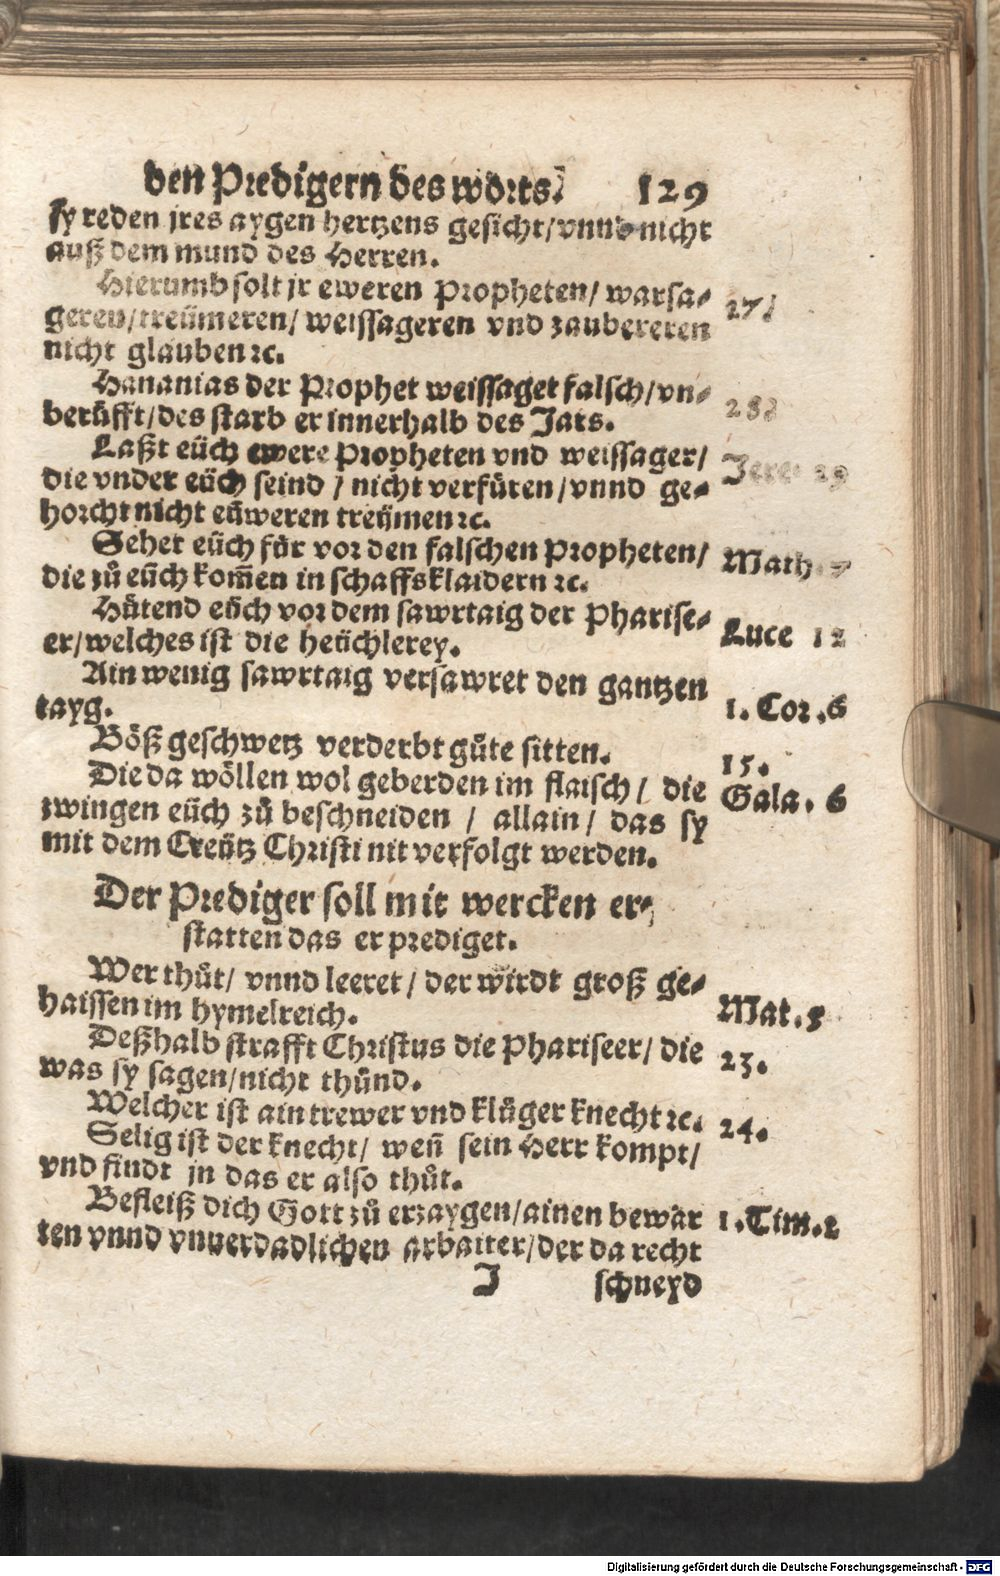 den Predigern des worts. 129
sy reden jres aygen hertzens gesicht/vnnd nicht
auß dem mund des Herren.
Hierumb solt jr eweren Propheten/ warsa⸗ 27.
geren/treümeren/ weissageren vnd zaubereren
nicht glauben ꝛc.
Hananias der Prophet weissaget falsch/vn⸗ 28.
berüfft/des starb er innerhalb des Jars.
Laßt eüch ewere Propheten vnd weissager/ Jere. 29
die vnder eüch seind / nicht verfüren/vnnd ge⸗
horcht nicht eüweren treümen ꝛc.
Sehet eüch für vor den falschen Propheten/ Math. 7
die zů eüch kom̃en in schaffsklaidern ꝛc.
Hütend eüch vor dem sawrtaig der Pharise⸗
er/welches ist die heüchlerey. Luce 12
Ain wenig sawrtaig versawret den gantzen
tayg. 1. Cor. 6
Böß geschwetz verderbt gůte sitten. 15.
Die da wöllen wol geberden im flaisch/ die Gala. 6
zwingen eüch zů beschneiden / allain/ das sy
mit dem Creütz Christi nit verfolgt werden.
Der Prediger soll mit wercken er⸗
statten das er prediget.
Wer thůt/ vnnd leeret/ der wirdt groß ge⸗
haissen im hymelreich. Mat. 5
Deßhalb strafft Christus die Phariseer/ die 23.
was sy sagen/nicht thůnd.
Welcher ist ain trewer vnd klůger knecht ꝛc. 24.
Selig ist der knecht/ weñ sein Herr kompt/
vnd findt jn das er also thůt.
Befleiß dich Gott zů erzaygen/ainen bewär 1. Tim. 2
ten vnnd vnuerdadlichen arbaiter/der da recht
J schneyd
Digitalisierung gefördert durch die Deutsche Forschungsgemeinschaft - DFG